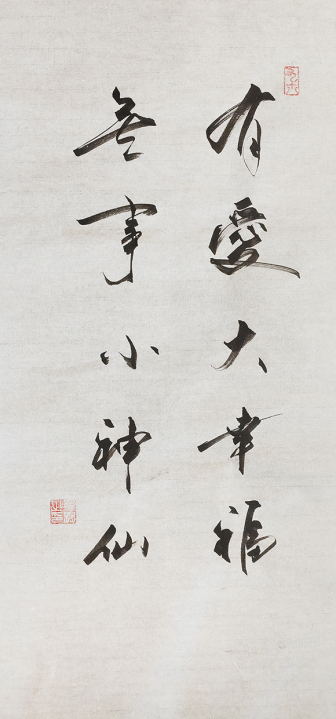 有愛大幸福
無事小神仙